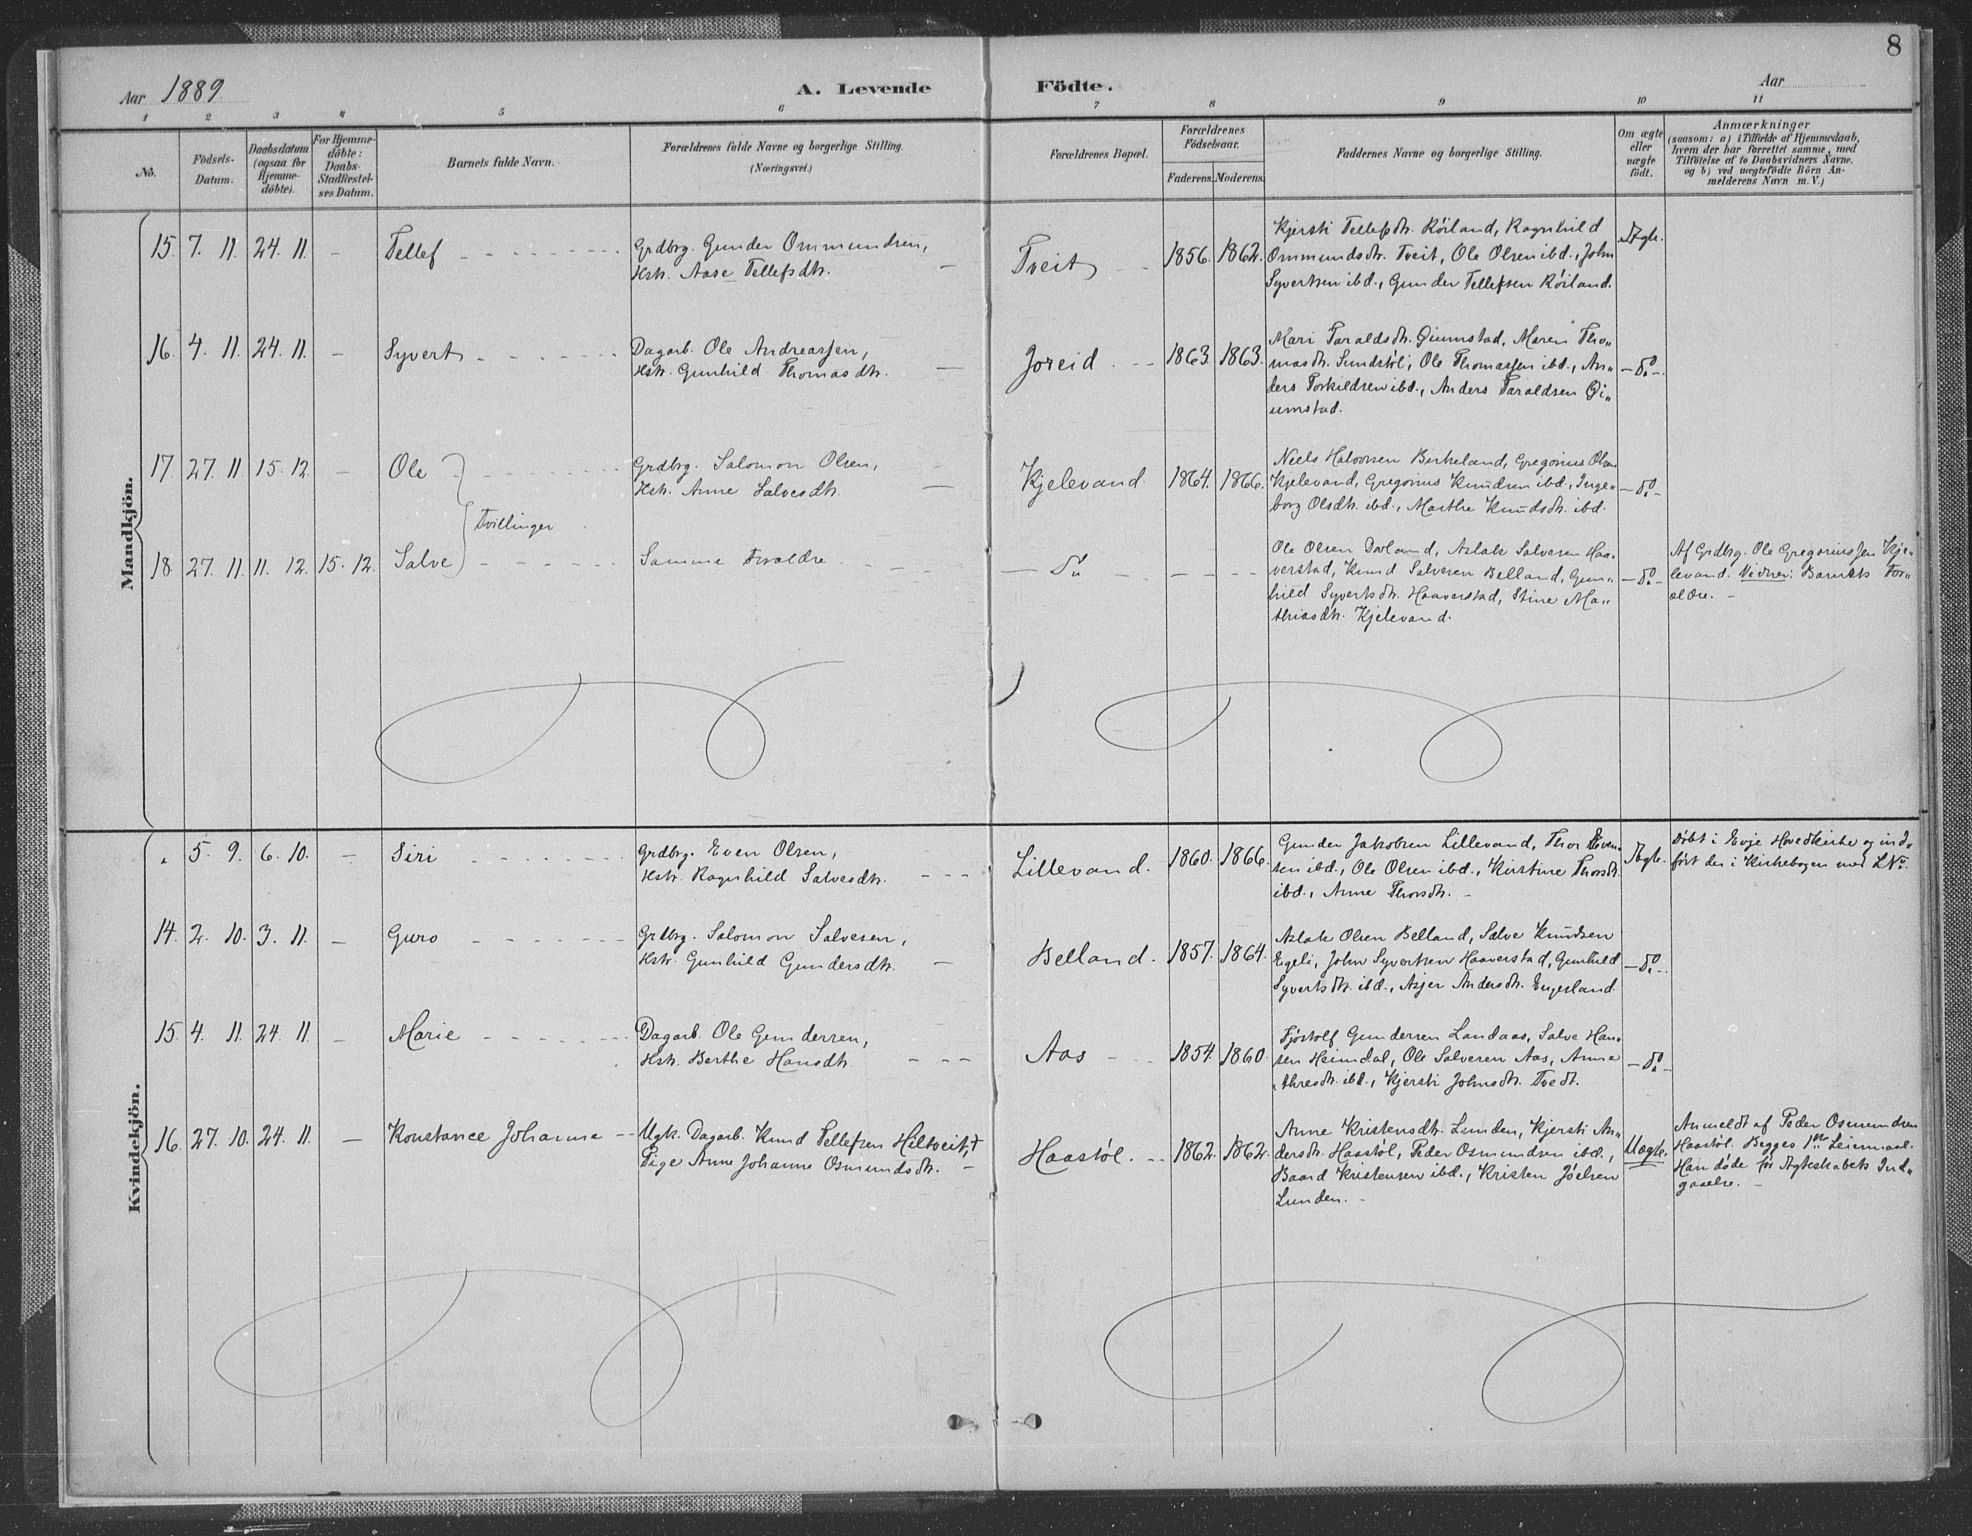 8
Aar 1889.
A. Levende Födte.
Aar
1 2 3 4 5 6 7 8 9 10 11
No.
Födsels-
Datum.
Daabsdatum
(ogsaa for
Hjemme-
döbte).
For Hjemme-
döbte:
Daabs-
Stadfæstel-
ses Datum.
Barnets fulde Navn.
Forældrenes fulde Navne og borgerlige Stilling.
(Næringsvei.)
Forældrenes Bopæl.
Forældrenes
Födselsaar.
Faderens. Moderens.
Faddernes Navne og borgerlige Stilling.
Om ægte
eller
uægte
födt.
Anmærkninger
(saasom: a) i Tilfælde af Hjemmedaab,
hvem der har forrettet samme, med
Tilföielse af to Daabsvidners Navne.
og b) ved uægtefödte Börn An-
melderens Navn m. V.)
Mandkjön.
15. 7. 11. 24. 11. –
Tellef
Grdbrg. Gunder Ommundsen,
Hstr. Aase Tellefsdtr.
Tveit
1856. 1862.
Kjersti Tellefsdtr. Röiland, Ragnhild
Ommundsdtr. Tveit, Ole Olsen ibd., John
Syvertsen ibd., Gunder Tellefsen Röiland.
Ægte.
16. 4. 11. 24. 11. –
Syvert
Dagarb. Ole Andreassen,
Hstr. Gunhild Thomasdtr.
Joreid
1863. 1863.
Mari Taraldsdtr. Öiumstad, Maren Tho„
masdtr. Sundstöl, Ole Thomassen ibd., An„
ders Torkildsen ibd., Anders Taraldsen Öi„
umstad.
– do –
17. 27. 11. 15. 12. –
Ole
Grdbrg. Salomon Olsen,
Hstr. Anne Salvesdtr.
Kjelevand
1864. 1866.
Niels Halvorsen Birkeland, Gregorius Olsen
Kjelevand, Gregorius Knudsen ibd., Inge„
borg Olsdtr. ibd., Marthe Knudsdtr. ibd.
– do –
Tvillinger
18. 27. 11. 11. 12. 15. 12.
Salve
Samme Forældre
– do –
Ole Olsen Dovland, Aslak Salvesen Haa„
verstad, Knud Salvesen Belland, Gun„
hild Syvertsdtr. Haaverstad, Stine Ma„
thiasdtr. Kjelevand.
– do –
Af Grdbrg. Ole Gregoriussen Kje„
levand. Vidner: Barnets For„
ældre. –
Kvindekjön.
„ 5. 9. 6. 10. –
Siri
Grdbrg. Even Olsen,
Hstr. Ragnhild Salvesdtr.
Lillevand.
1860. 1866.
Gunder Jakobsen Lillevand, Thor Even„
sen ibd., Ole Olsen ibd., Kirstine Thorsdtr.
ibd., Anne Thorsdtr. –
Ægte.
Döbt i Evje Hovedkirke og ind„
fört der i Kirkebogen med L No.
14. 2. 10. 3. 11. –
Guro
Grdbrg. Salomon Salvesen,
Hstr. Gunhild Gundersdtr.
Belland.
1857. 1864.
Aslak Olsen Belland, Salve Knudsen
Egeli, John Syvertsen Haaverstad, Gunhild
Syvertsdtr. ibd., Asjer Andersdtr. Engesland.
– do –
15. 4. 11. 24. 11. –
Marie
Dagarb. Ole Gundersen,
Hstr. Berthe Hansdtr.
Aas
1854. 1860.
Tjöstolf Gundersen Landaas, Salve Han„
sen Heimdal, Ole Salvesen Aas, Anne
Athresdtr. ibd., Kjersti Johnsdtr. Tvedt.
– do –
16. 27. 10. 24. 11. –
Konstance Johanne
Ugk. Dagarb. Knud Tellefsen Hiltveit, †
Pige Anne Johanne Osmundsdtr. –
Haastöl.
1862. 1862.
Anne Kristensdtr. Lunden, Kjersti An„
dersdtr. Haastöl, Peder Osmundsen ibd.,
Baard Kristensen ibd., Kristen Jöelsen
Lunden. –
Uægte.
Anmeldt af Peder Osmundsen
Haastöl. Begges 1ste Leiermaal.
Han döde för Ægteskabets Ind„
gaaelse. –